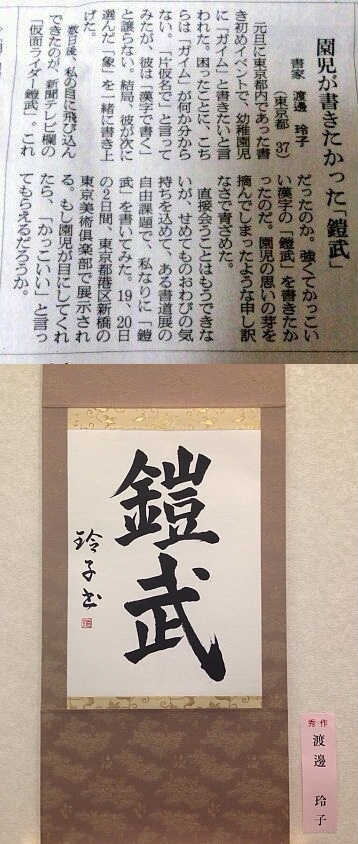 園児が書きたかった「鎧武」
書家　渡邊　玲子
（東京都　37）
元日に東京都内であった書
き初めイベントで、幼稚園児
に「ガイム」と書きたいと言
われた。困ったことに、こち
らは「ガイム」が何か分から
ない。「片仮名で」と言って
みたが、彼は「漢字で書く」
と譲らない。結局、彼が次に
選んだ「象」を一緒に書き上
げた。
数日後、私の目に飛び込ん
できたのが、新聞テレビ欄の
「仮面ライダー鎧武」。これ
だったのか。強くてかっこい
い漢字の「鎧武」を書きたか
ったのだ。園児の思いの芽を
摘んでしまったような申し訳
なさで青ざめた。
直接会うことはもうできな
いが、せめてものおわびの気
持ちを込めて、ある書道展の
自由課題で、私なりに「鎧
武」を書いてみた。19、20日
の2日間、東京都港区新橋の
東京美術倶楽部で展示され
る。もし園児が目にしてくれ
たら、「かっこいい」と言っ
てもらえるだろうか。
鎧武
玲子書
秀作
渡邊　玲子